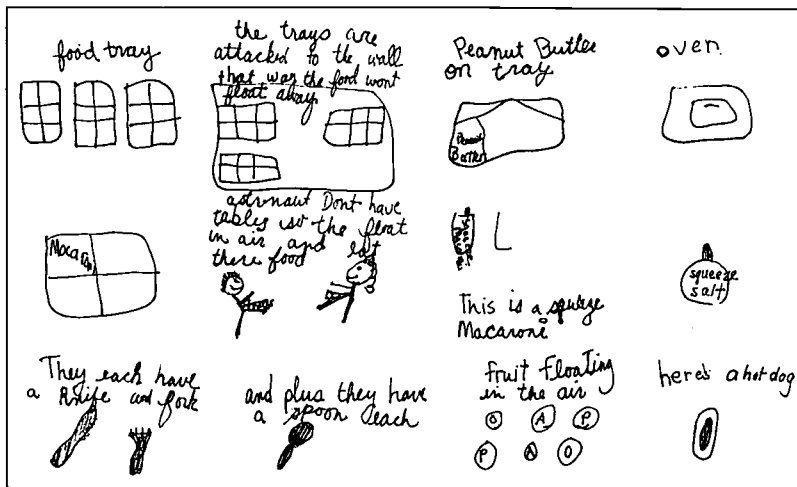 food tray
the trays are
attacked to the wall
that way the food wont
float away
Peanut Butter
on tray
oven
Peanut
Butter
astronaut Dont have
tables so the float
in air and eat
there food
Macaroni
This is a squeze
Macaroni
squeeze
salt
They each have
a Knife and fork
and plus they have
a spoon each
fruit floating
in the air
O A P
P A O
here's a hot dog